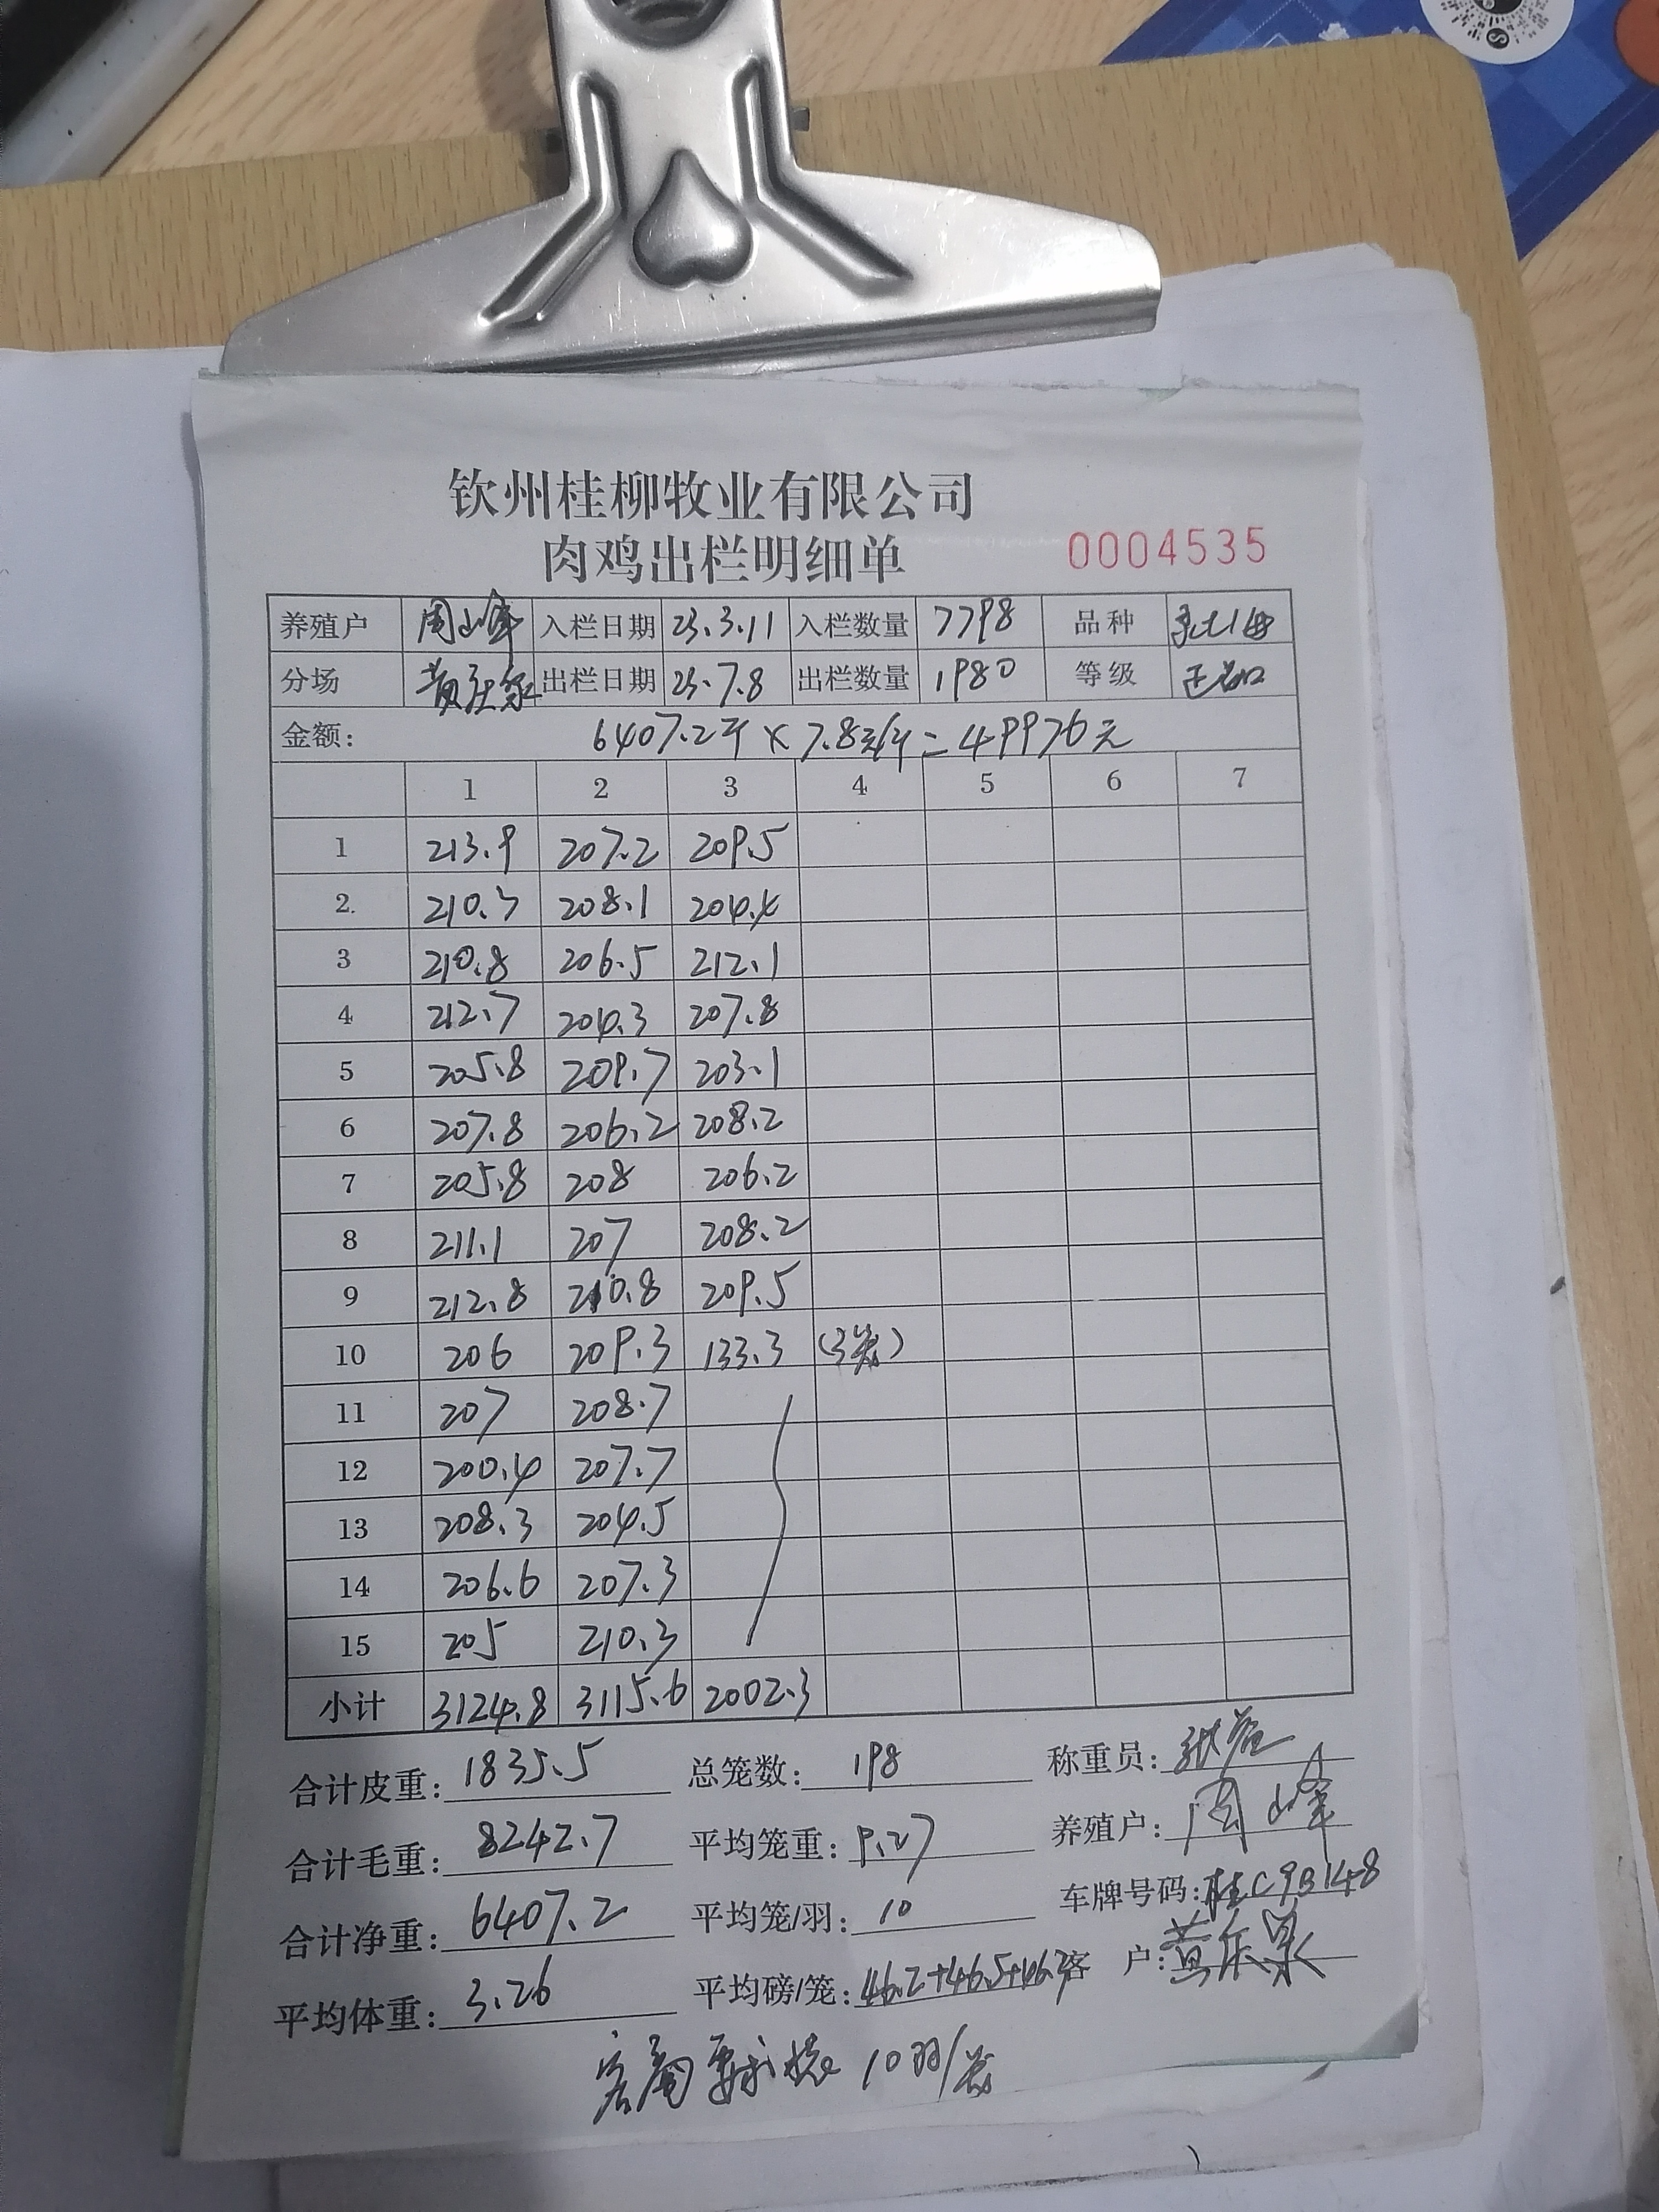 钦州桂柳牧业有限公司
肉鸡出栏明细单 0004535
养殖户 周山峰 入栏日期 23.3.11 入栏数量 7798 品种
分场 出栏日期 23.7.8 出栏数量 1980 等级
金额: 6407.2斤×7.8元/斤=49976元
1 2 3 4 5 6 7
1 213.9 207.2 209.5
2 210.7 208.1 204.4
3 210.8 206.5 212.1
4 212.7 204.3 207.8
5 205.8 209.7 203.1
6 207.8 206.2 208.2
7 205.8 208 206.2
8 211.1 207 208.2
9 212.8 210.8 209.5
10 206 209.3 133.3 (3笼)
11 207 208.7
12 200.4 207.7
13 208.3 204.5
14 206.6 207.3
15 205 210.3
小计 3124.8 3115.6 2002.3
合计皮重: 1835.5 总笼数: 198 称重员:
合计毛重: 8242.7 平均笼重: 9.27 养殖户: 周山峰
合计净重: 6407.2 平均笼/羽: 10 车牌号码: 桂C9B148
平均体重: 3.26 平均磅/笼: 46.2+46.5+46.3 客户:
10羽/笼